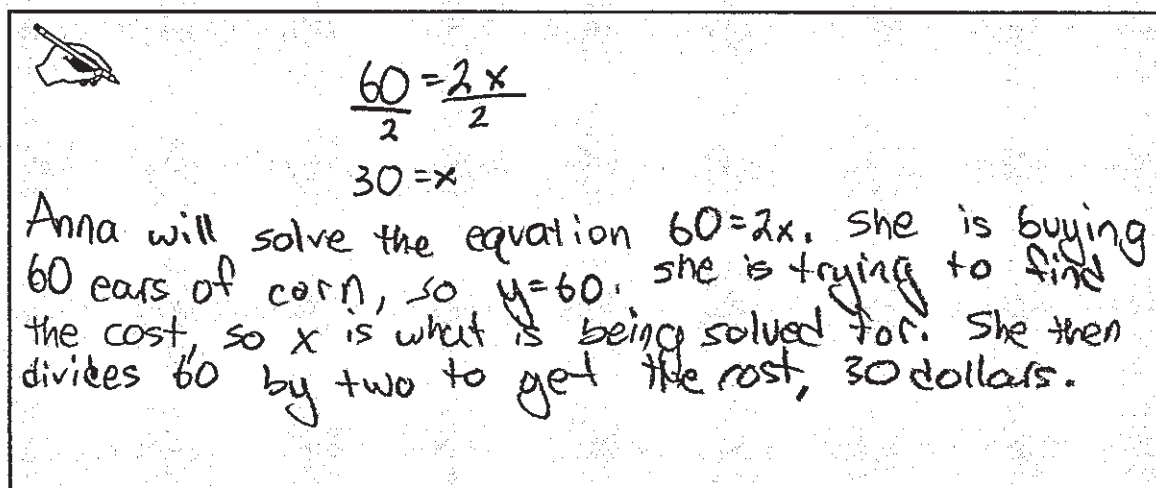 60 = 2x
2 2
30 = x
Anna will solve the equation 60=2x. She is buying
60 ears of corn, so y=60. she is trying to find
the cost, so x is what is being solved for. She then
divides 60 by two to get the cost, 30 dollars.